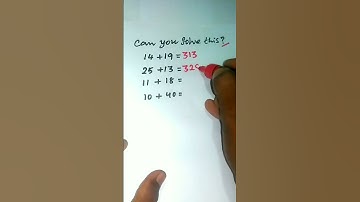 Can you solve this?
14 + 19 = 313
25 + 13 = 32
11 + 18 =
10 + 40 =